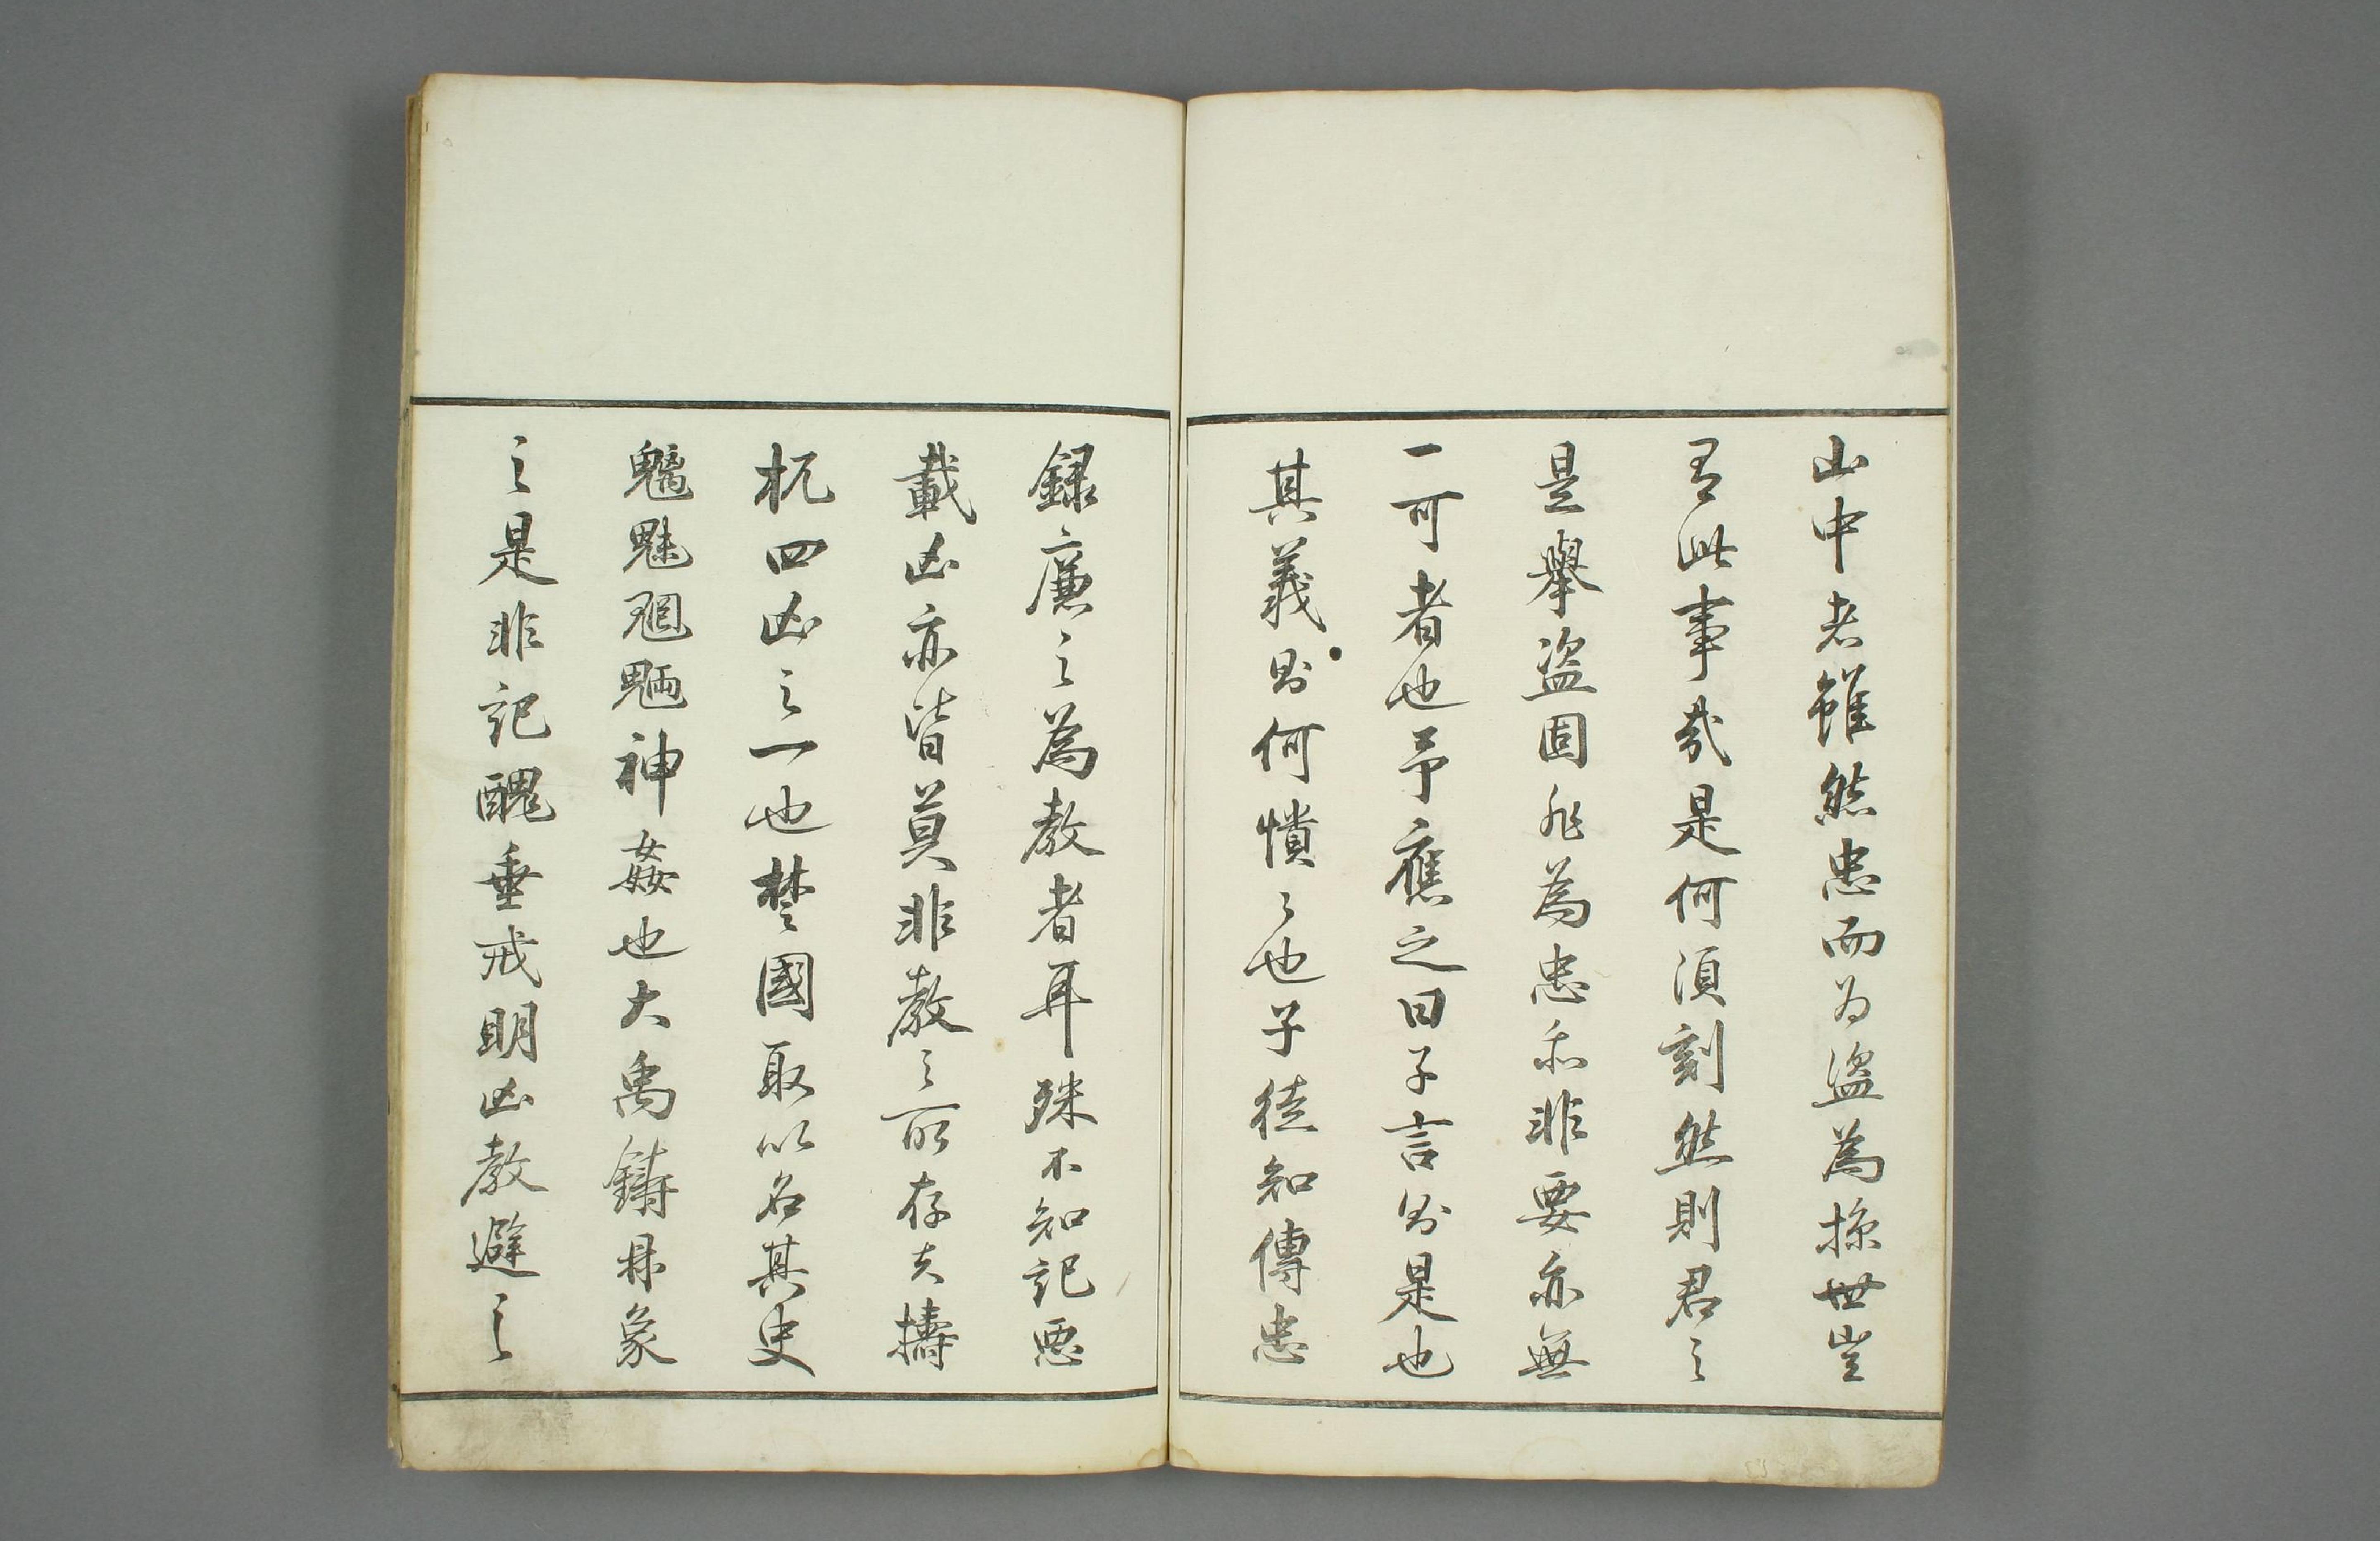 山中者雖然忠而为盜為掠世豈
有此事哉是何須刻然則君之
是舉盜固非為忠亦非要亦無
一可者也予應之曰子言則是也
其義則何憒〻也子徒知傳忠
録廉之為教者耳殊不知記惡
載凶亦皆莫非教之所存夫擣
杌四凶之一也楚國取以名其史
魑魅魍魎神姦也大禹鑄鼎象
之是非記醜垂戒明凶教避之